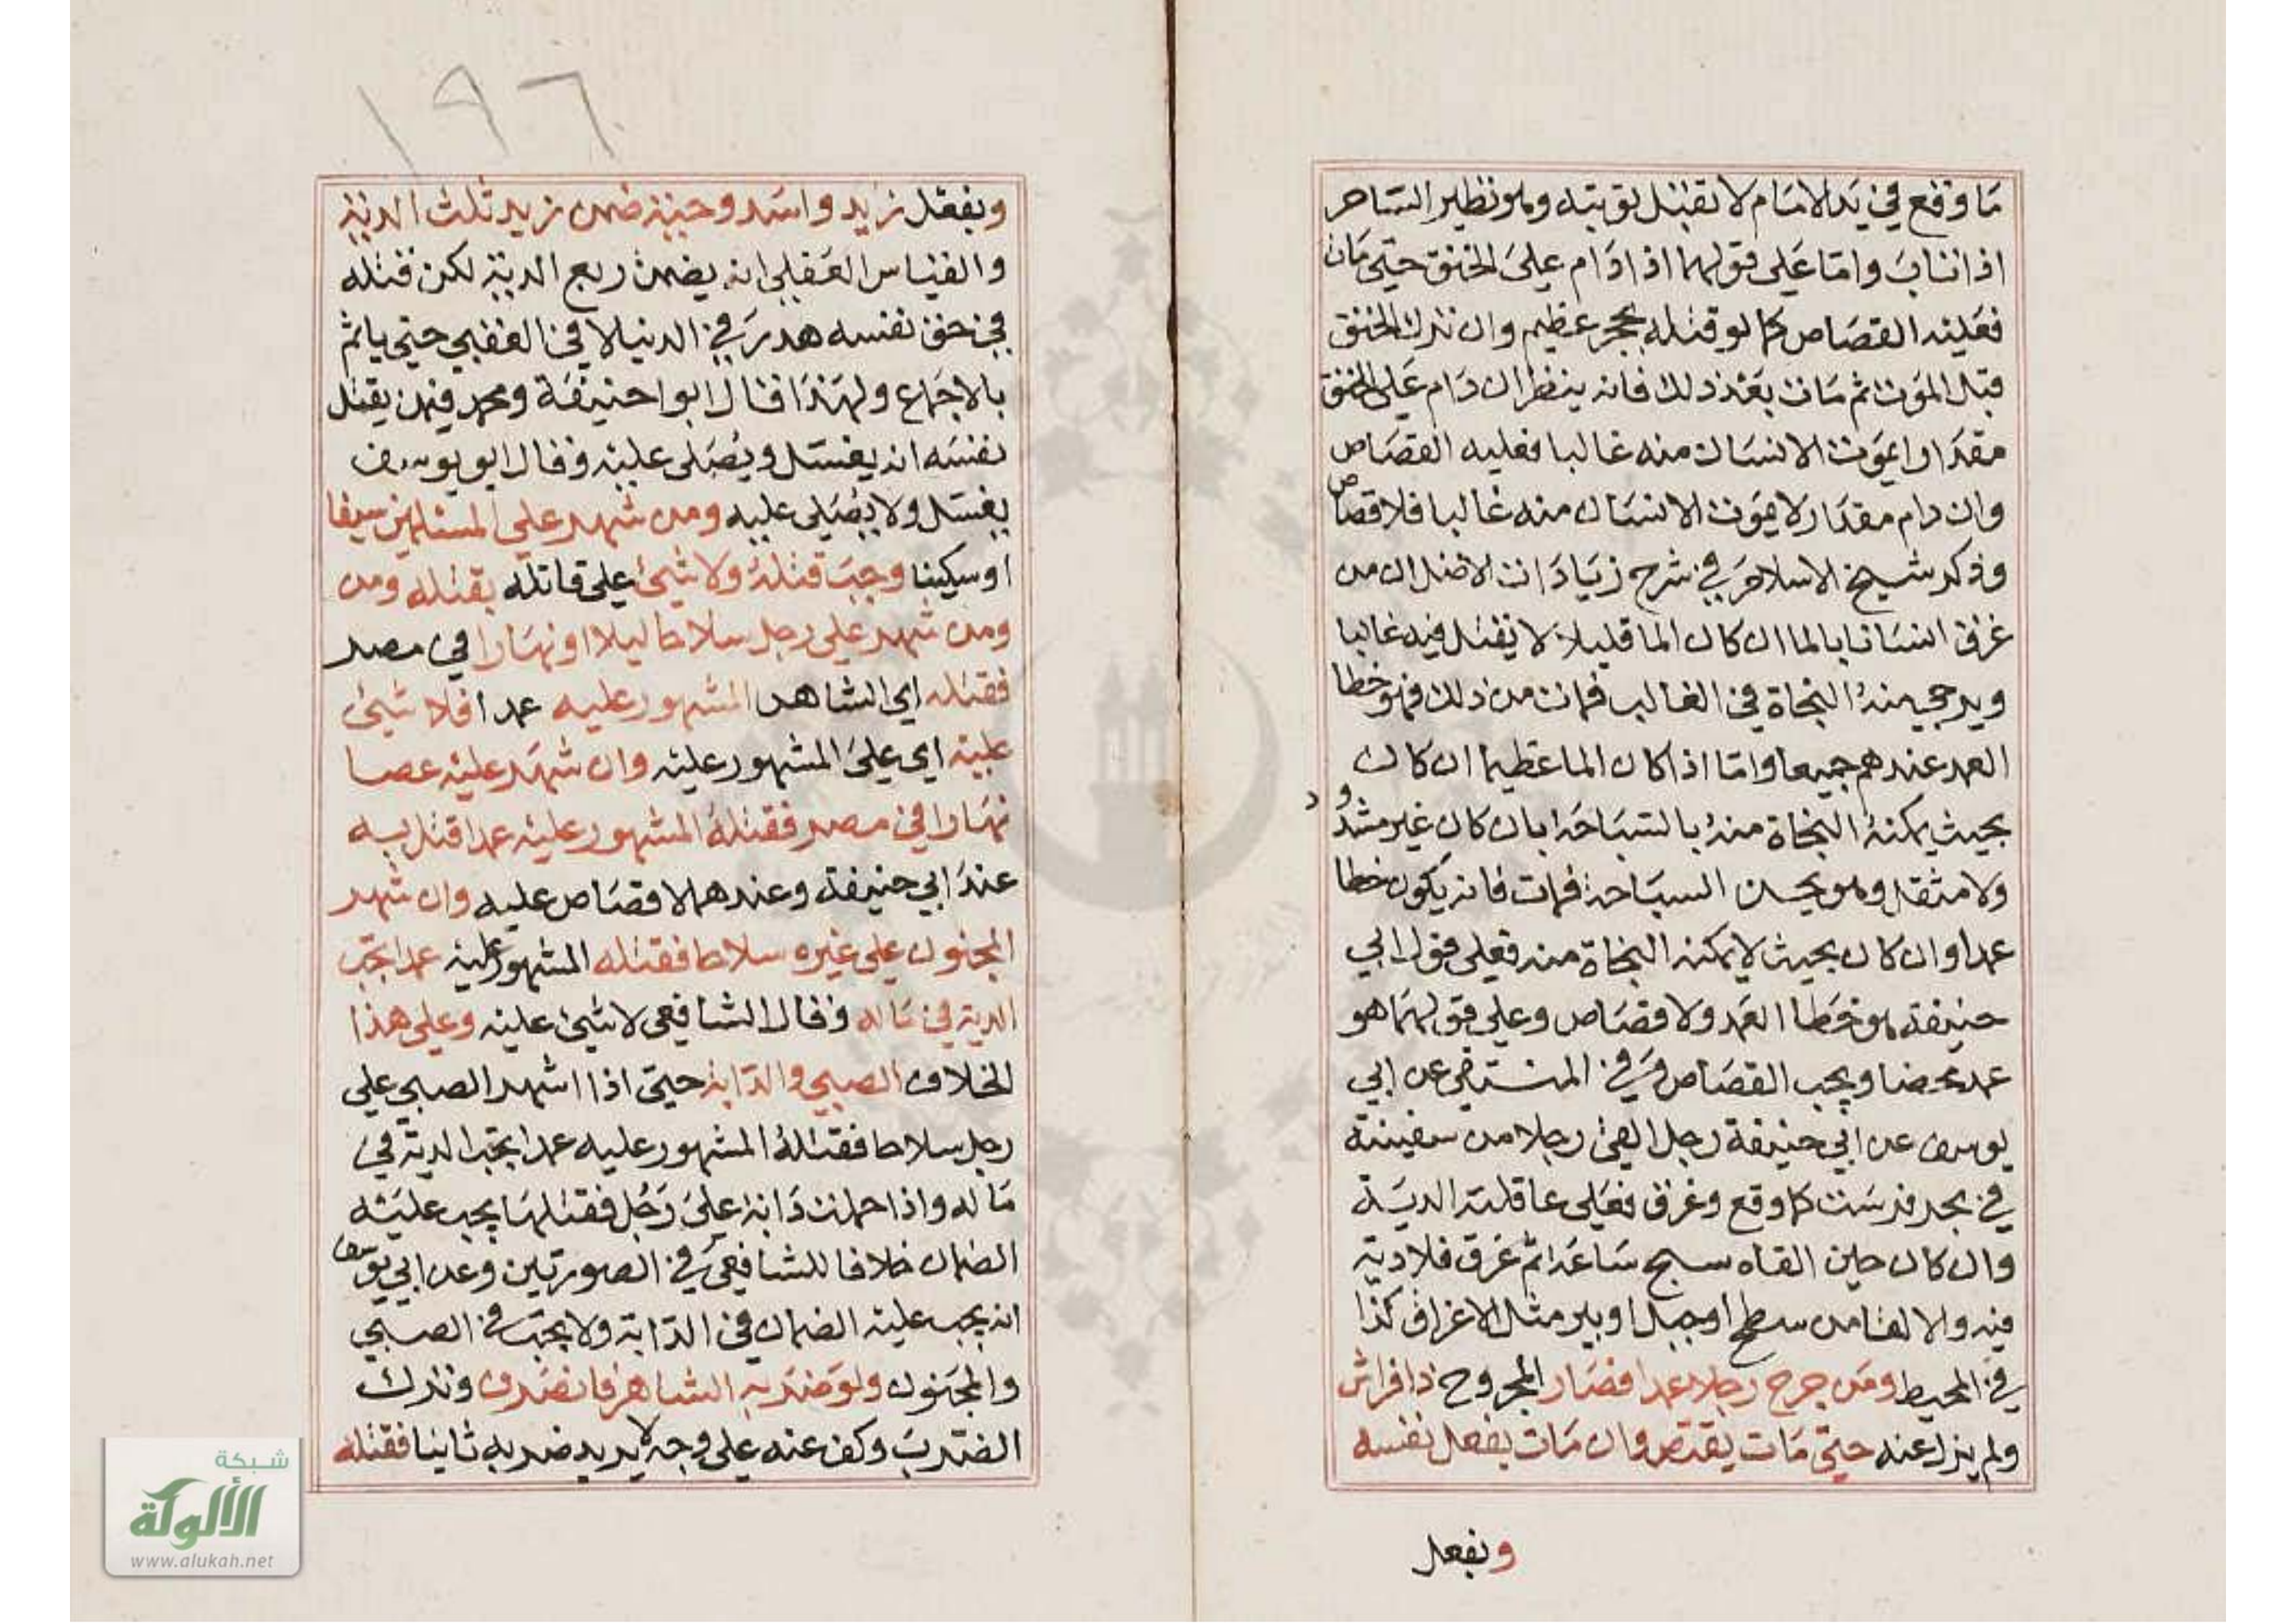 ما وقع في يد الامام لا تقبل توبته وهو نظير الساحر
اذا تاب واما على قولهما اذا دام على الخنق حتى مات
فعليه القصاص كما لو قتله بحجر عظيم وان ترك الخنق
قبل الموت ثم مات بعد ذلك فانه ينظر ان دام على الخنق
مقدارا يموت الانسان منه غالبا فعليه القصاص
وان دام مقدار لا يموت الانسان منه غالبا فلا قصاص
وذكر شيخ الاسلام في شرح زيادات الاصل ان من
غرق انسانا بالما ان كان الما قليلا لا يقتل فيه غالبا
ويرجي منه النجاة في الغالب فمات من ذلك فهو خطا
العمد عندهم جميعا واما اذا كان الما عظيما ان كان
بحيث يمكنه النجاة منه بالسباحة بان كان غير مشدود
ولا مثقل وهو يحسن السباحة فمات فانه يكون خطا
عمدا وان كان بحيث لا يمكنه النجاة منه فعلى قول ابي
حنيفة هو خطا العمد ولا قصاص وعلى قولهما هو
عمد محضا ويجب القصاص وفي المنتقى عن ابي
يوسف عن ابي حنيفة رجل القى رجلا من سفينة
في بحر فرسب كما وقع وغرق فعلى عاقلته الدية
وان كان حين القاه سبح ساعة ثم غرق فلا دية
فيه والالقا من سطح او جبل او بير مثل الاغراق كذا
في المحيط ومن جرح رجلا عمدا فصار المجروح ذا فراش
ولم يزل عنه حتى مات يقتص وان مات بفعل نفسه
وبفعل
١٩٦
وبفعل زيد واسد وحية ضمن زيد ثلث الدية
والقياس العقلي انه يضمن ربع الدية لكن قتله
في حق نفسه هدر في الدنيا لا في العقبي حتى ياثم
بالاجماع ولهذا قال ابوا حنيفة ومحمد فيمن يقتل
نفسه انه يغسل ويصلى عليه وقال ابو يوسف
يغسل ولا يصلى عليه ومن شهر على المسلمين سيفا
او سكينا وجب قتله ولا شيئ على قاتله بقتله ومن
ومن شهر على رجل سلاحا ليلا او نهارا في مصر
فقتله اي الشاهر المشهور عليه عمدا فلا شيئ
عليه اي على المشهور عليه وان شهر عليه عصا
نهارا في مصر فقتله المشهور عليه عمدا قتل به
عند ابي حنيفة وعندهما لا قصاص عليه وان شهر
المجنون على غيره سلاحا فقتله المشهور عليه عمدا تجب
الدية في ماله وقال الشافعي لا شيئ عليه وعلى هذا
الخلاف الصبي والدابة حتى اذا اشهر الصبي على
رجل سلاحا فقتله المشهور عليه عمدا تجب الدية في
ماله واذا حملت دابة على رجل فقتلها يجب عليه
الضمان خلافا للشافعي في الصورتين وعن ابي يوسف
انه يجب عليه الضمان في الدابة ولا يجب في الصبي
والمجنون ولو ضربه الشاهر فانصرف وترك
الضرب وكف عنه على وجه لا يريد ضربه ثانيا فقتله
شبكة
الألوكة
www.alukah.net